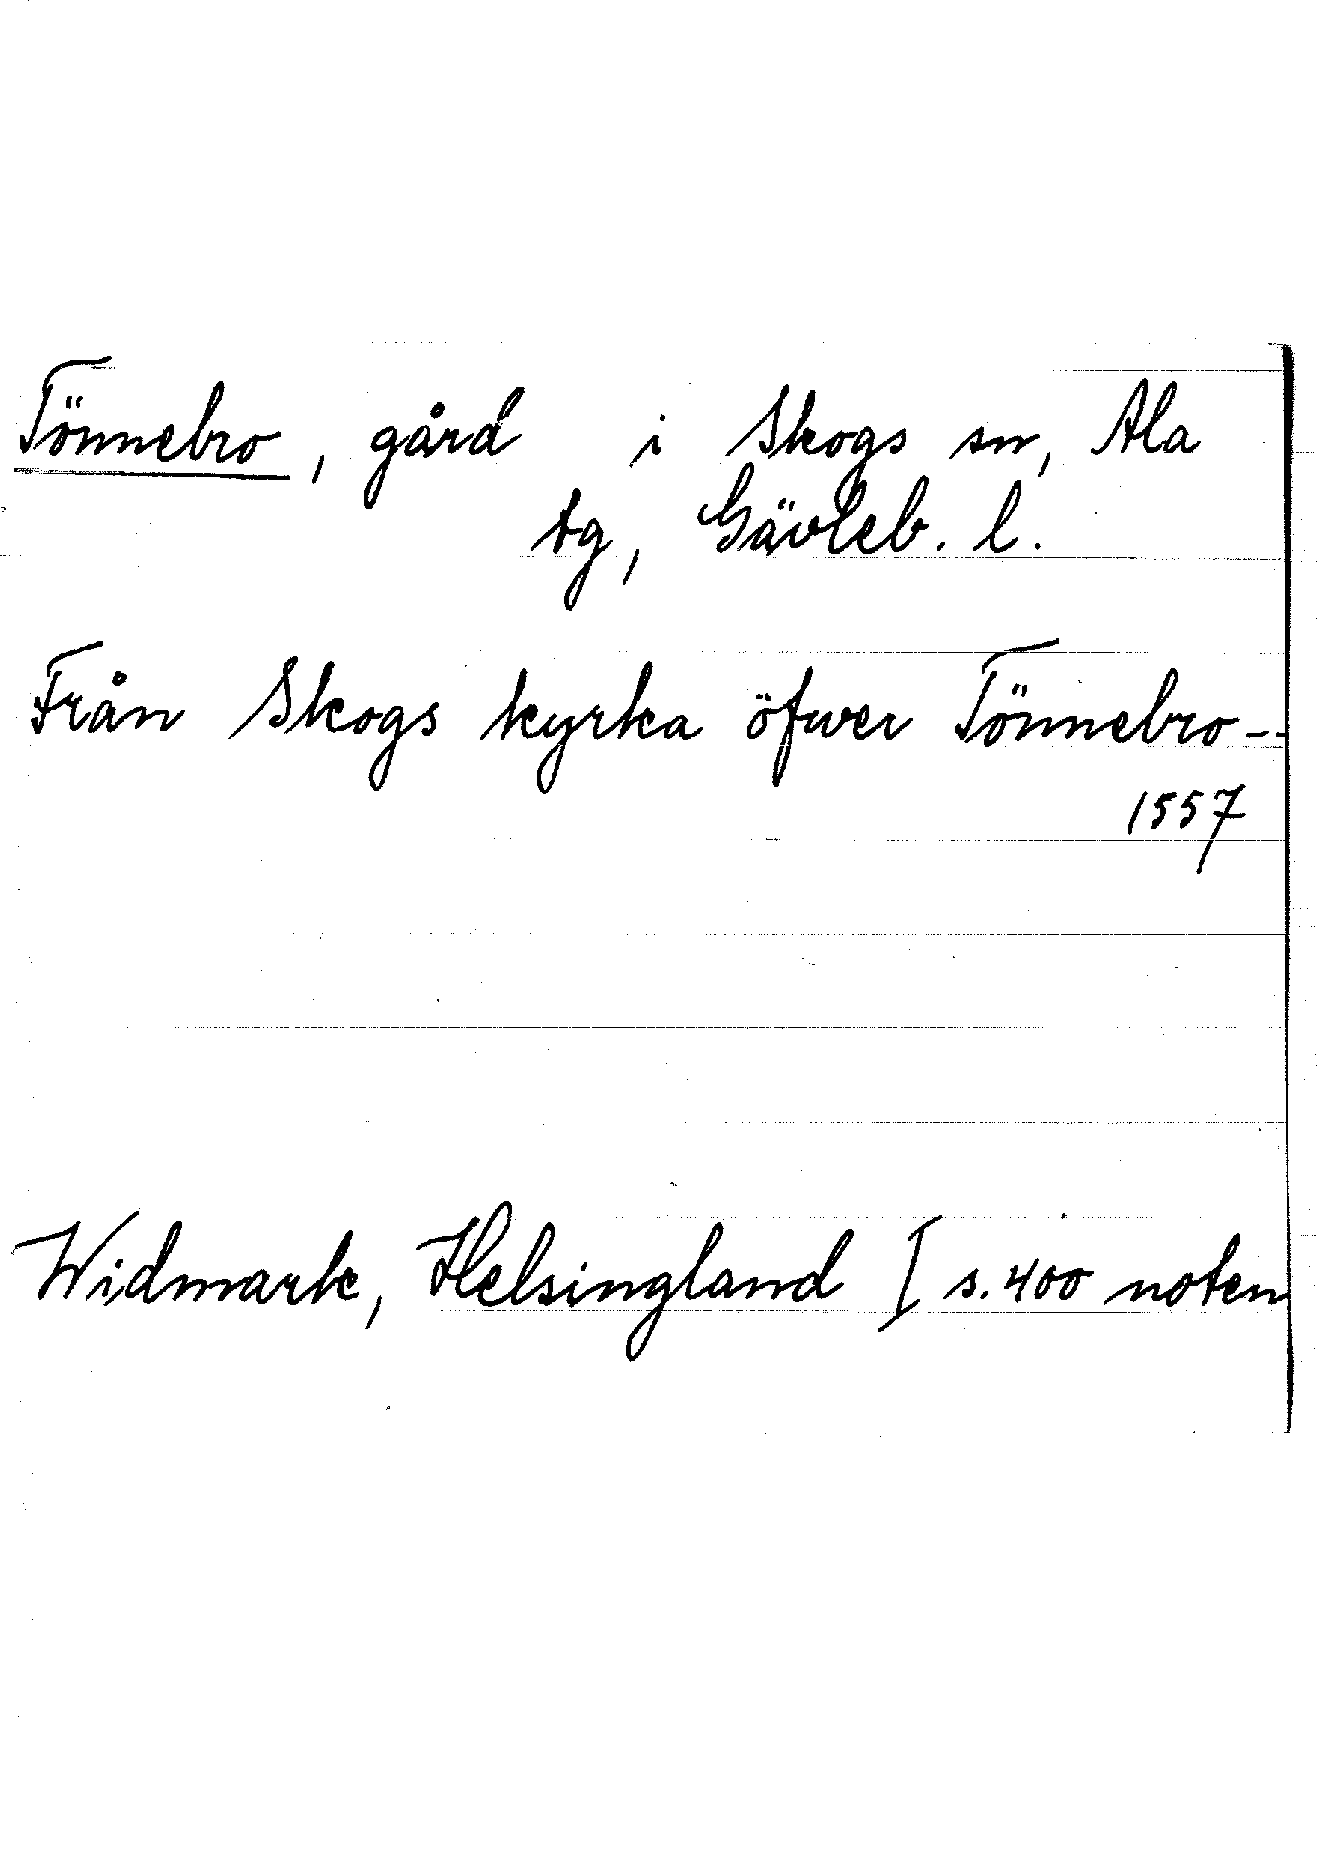 Tönnebro, gård i Skogs sn, Ala
tg, Gävleb. l.
Från Skogs kyrka öfwer Tönnebro --
1557
Widmark, Helsingland I s. 400 noten